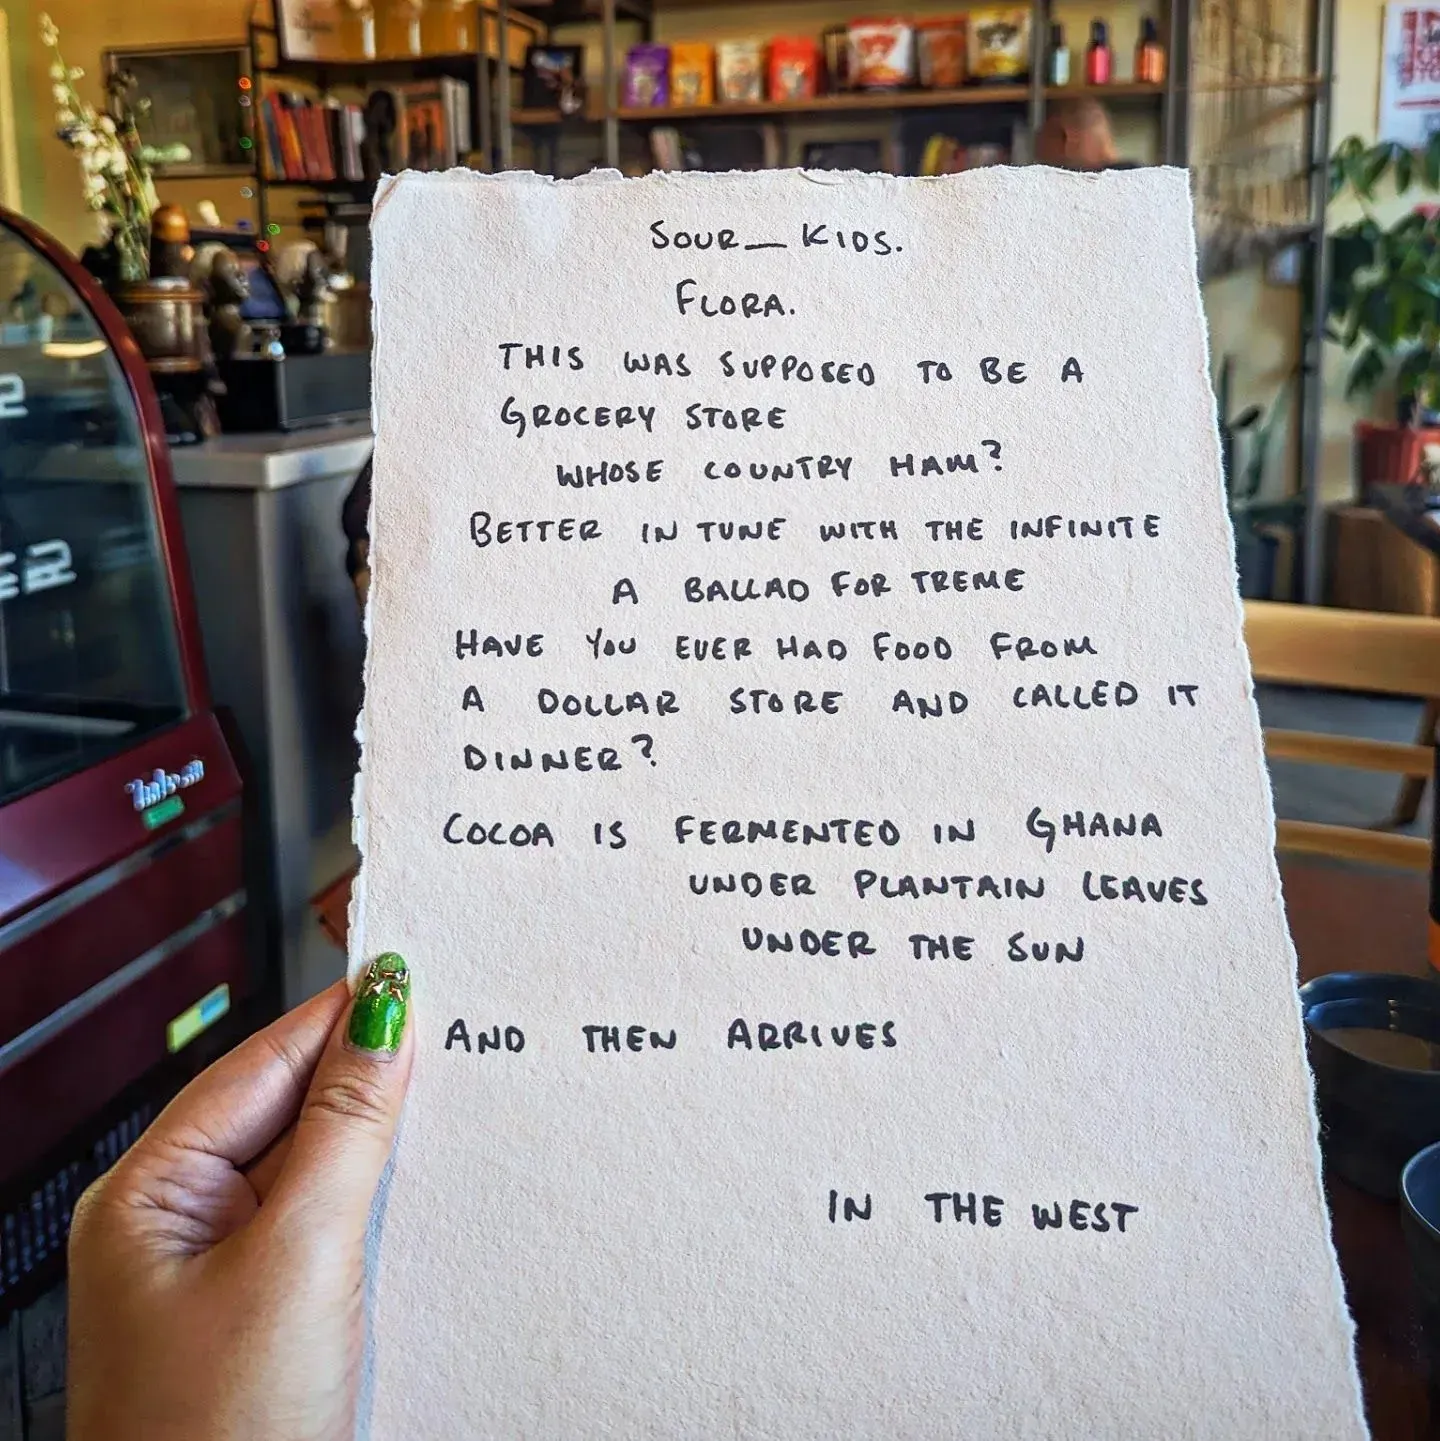 SOUR__ KIDS.
FLORA.
THIS WAS SUPPOSED TO BE A
GROCERY STORE
WHOSE COUNTRY HAM?
BETTER IN TUNE WITH THE INFINITE
A BALLAD FOR TREME
HAVE YOU EVER HAD FOOD FROM
A DOLLAR STORE AND CALLED IT
DINNER?
COCOA IS FERMENTED IN GHANA
UNDER PLANTAIN LEAVES
UNDER THE SUN
AND THEN ARRIVES
IN THE WEST